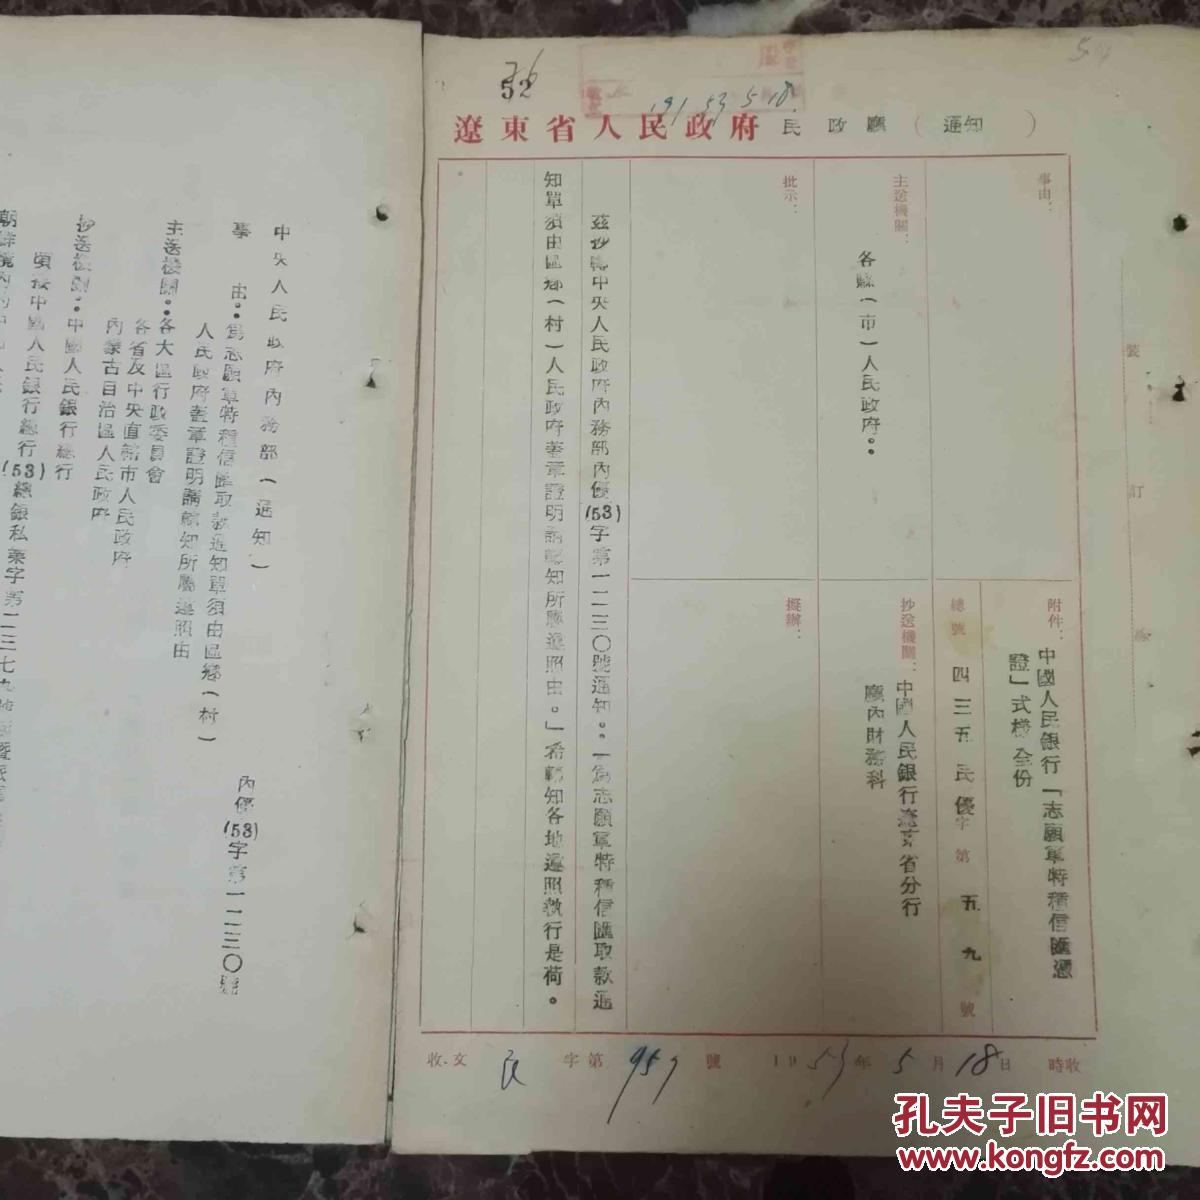 52
191 53 5 18
遼東省人民政府民政廳(通知)
事由：
附件：中國人民銀行「志願軍特種信匯憑
證」式樣全份
總號四三五民優字第五九號
主送機關：
各縣(市)人民政府：
抄送機關：中國人民銀行遼東省分行
廳內財務科
批示：
擬辦：
茲抄轉中央人民政府內務部內優(53)字第一二三〇號通知：「為志願軍特種信匯取款通
知單須由區鄉(村)人民政府蓋章證明請轉知所屬遵照由。」希轉知各地遵照執行是荷。
收文 民 字第 957 號 1953年5月18日 時收
裝
訂
中央人民政府內務部(通知)
內優(53)字第一二三〇號
事 由：為志願軍特種信匯取款通知單須由區鄉(村)
人民政府蓋章證明請轉知所屬遵照由
主送機關：各大區行政委員會
各省及中央直轄市人民政府
內蒙古自治區人民政府
抄送機關：中國人民銀行總行
頃接中國人民銀行總行(53)總銀私葉字第二三七九號
朝鮮境內的中
孔夫子旧书网
www.kongfz.com